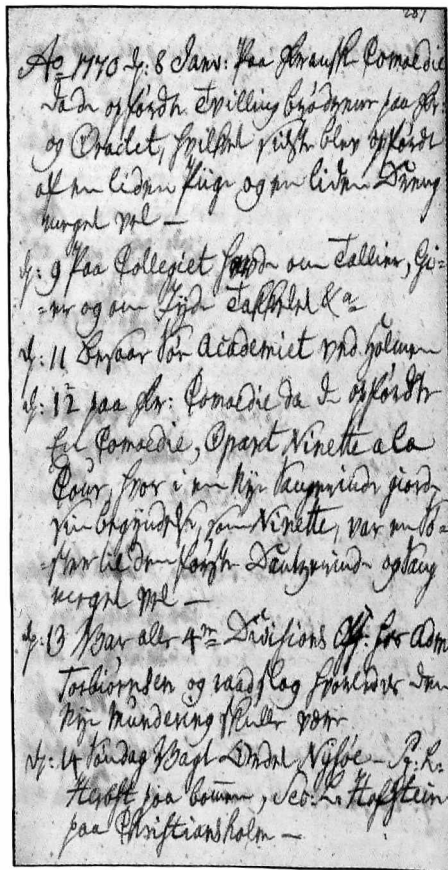 287
Aō 1770 d: 8 Janv: Paa fransk Comoedie
da de opførdte Tvillingbrødrene paa fr:
og Oraclet, hvilket sidste blev opførdt
af en liden Piige og en liden Dreng
meget vel —
d: 9 Paa Collegiet hørde om Tallier, Gi-
=er og om Jydn Takkelet &a
d: 11 Besaae Søe Academiet ved Holmen
d: 12 paa fr: Comoedie da de opførdte
En Comoedie, Opart Ninette a la
Cour, hvor i en Nye Sangerinde giorde
sin begyndelse, som Ninette, var en Sø=
=ster til den første Dantzerinde og Sang
meget vel —
d: 13 Var alle 4de Divisions Off: hos Adm
Torbiørnsen og raadslog hvorledes den
Nye Mundering skulle være
d: 14 Søndag Vagt Under Nysøe — Pr: L:
Herbst paa bommen, Sec: L: Hofstein
paa Christiansholm —